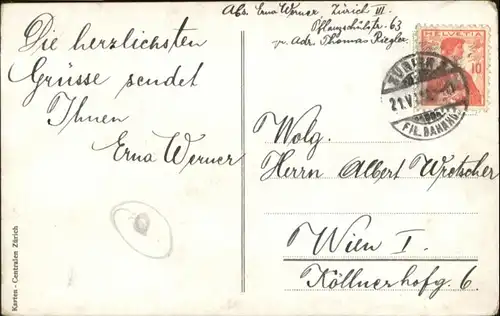 Abs. Erna Werner Zürich III.
Pflanzschulstr. 63
p. Adr. Thomas Riegler.
HELVETIA
10
ZÜRICH
21.V
FIL. BAHNHOF
Die herzlichsten
Grüsse sendet
Ihnen
Erna Werner
Wolg.
Herrn Albert Wretscher
Wien I.
Köllnerhofg. 6.
Karten-Centralen Zürich